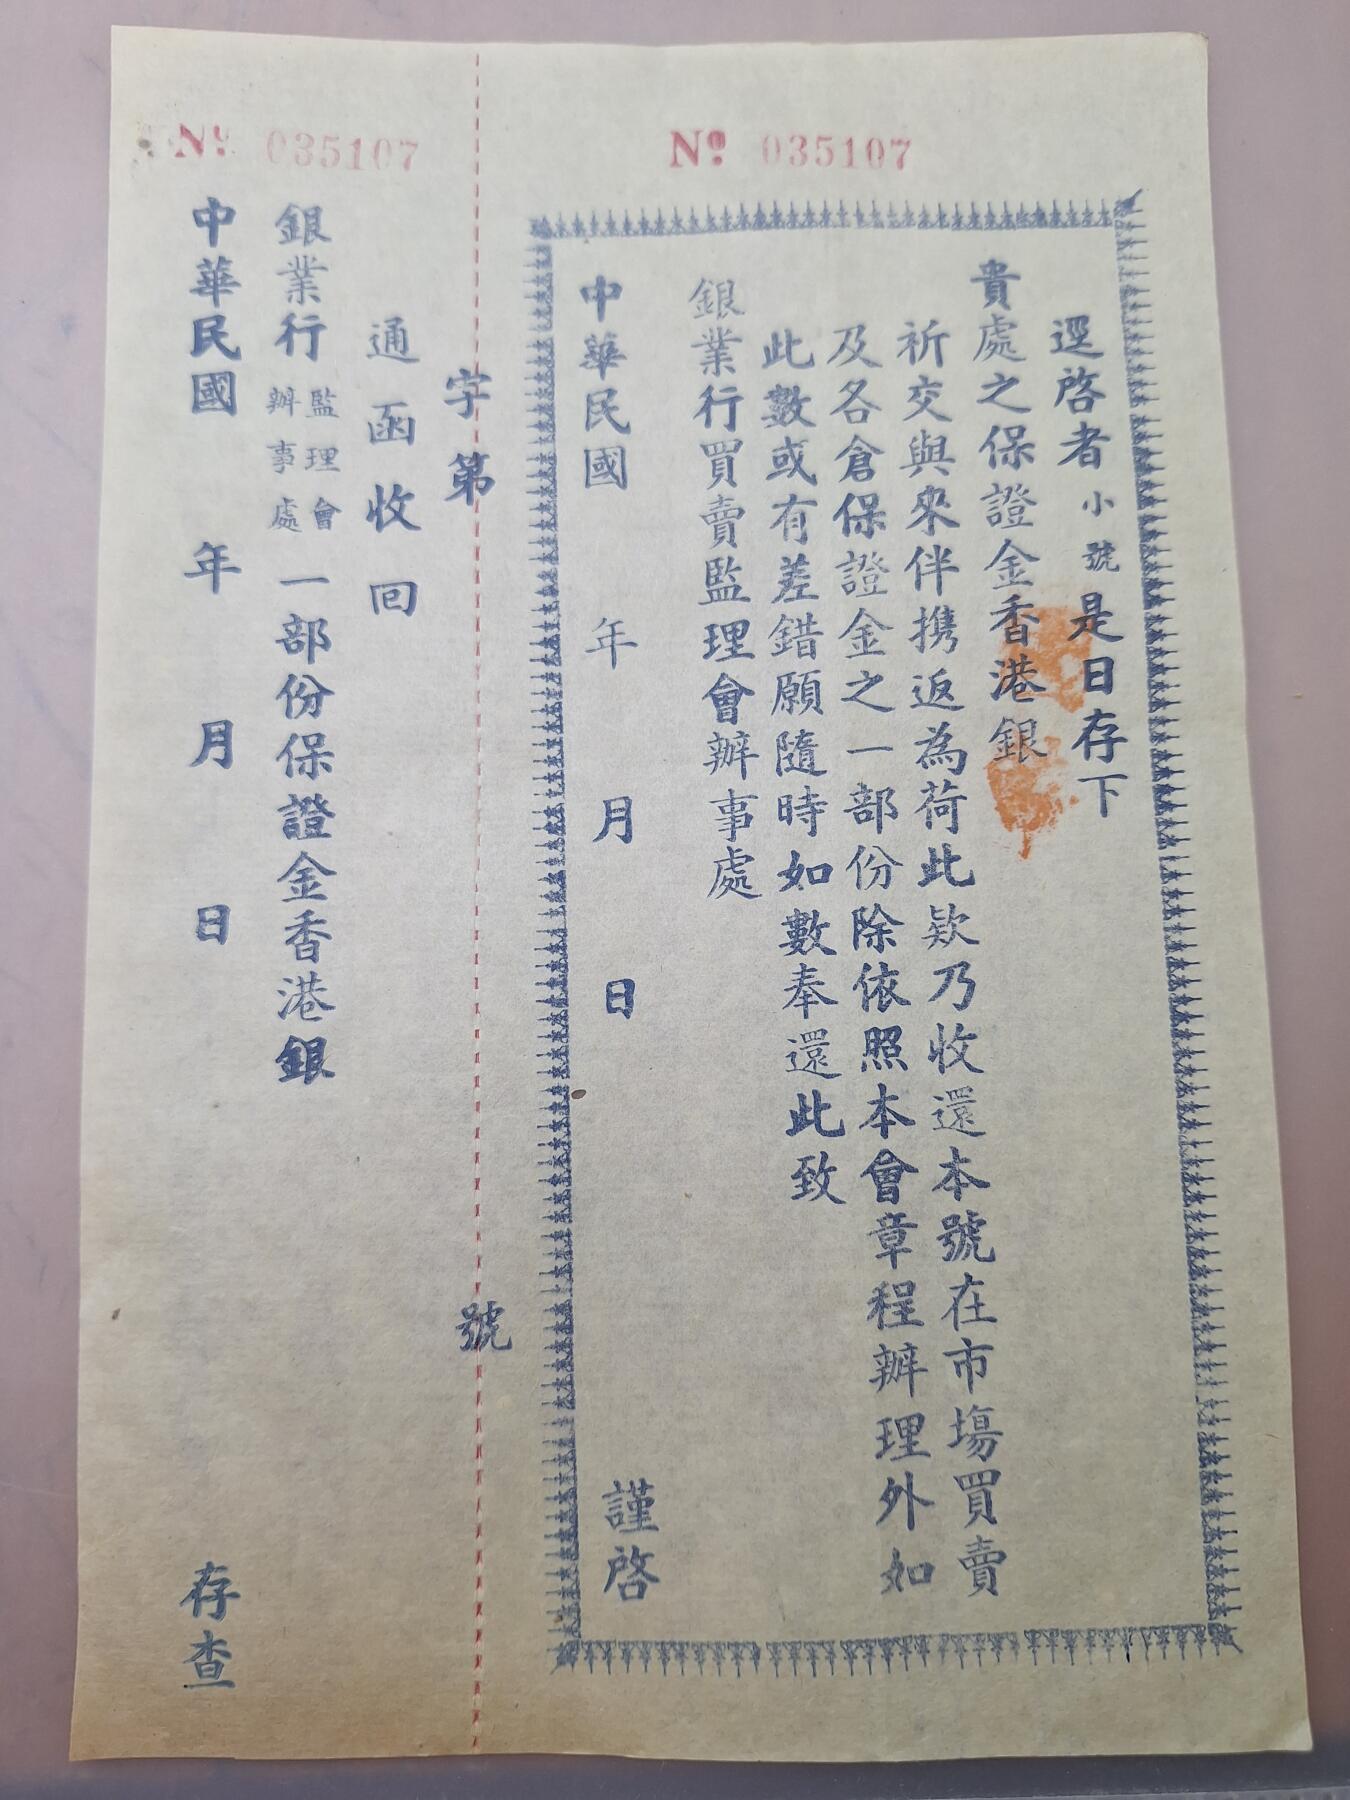 Nº 035107
逕啓者小號是日存下
貴處之保證金香港銀
祈交與來伴携返為荷此欵乃收還本號在市塲買賣
及各倉保證金之一部份除依照本會章程辦理外如
此數或有差錯願隨時如數奉還此致
銀業行買賣監理會辦事處
中華民國 年 月 日 謹啓
字第 號
Nº 035107
通函收回
銀業行監理會辦事處一部份保證金香港銀
中華民國 年 月 日 存查